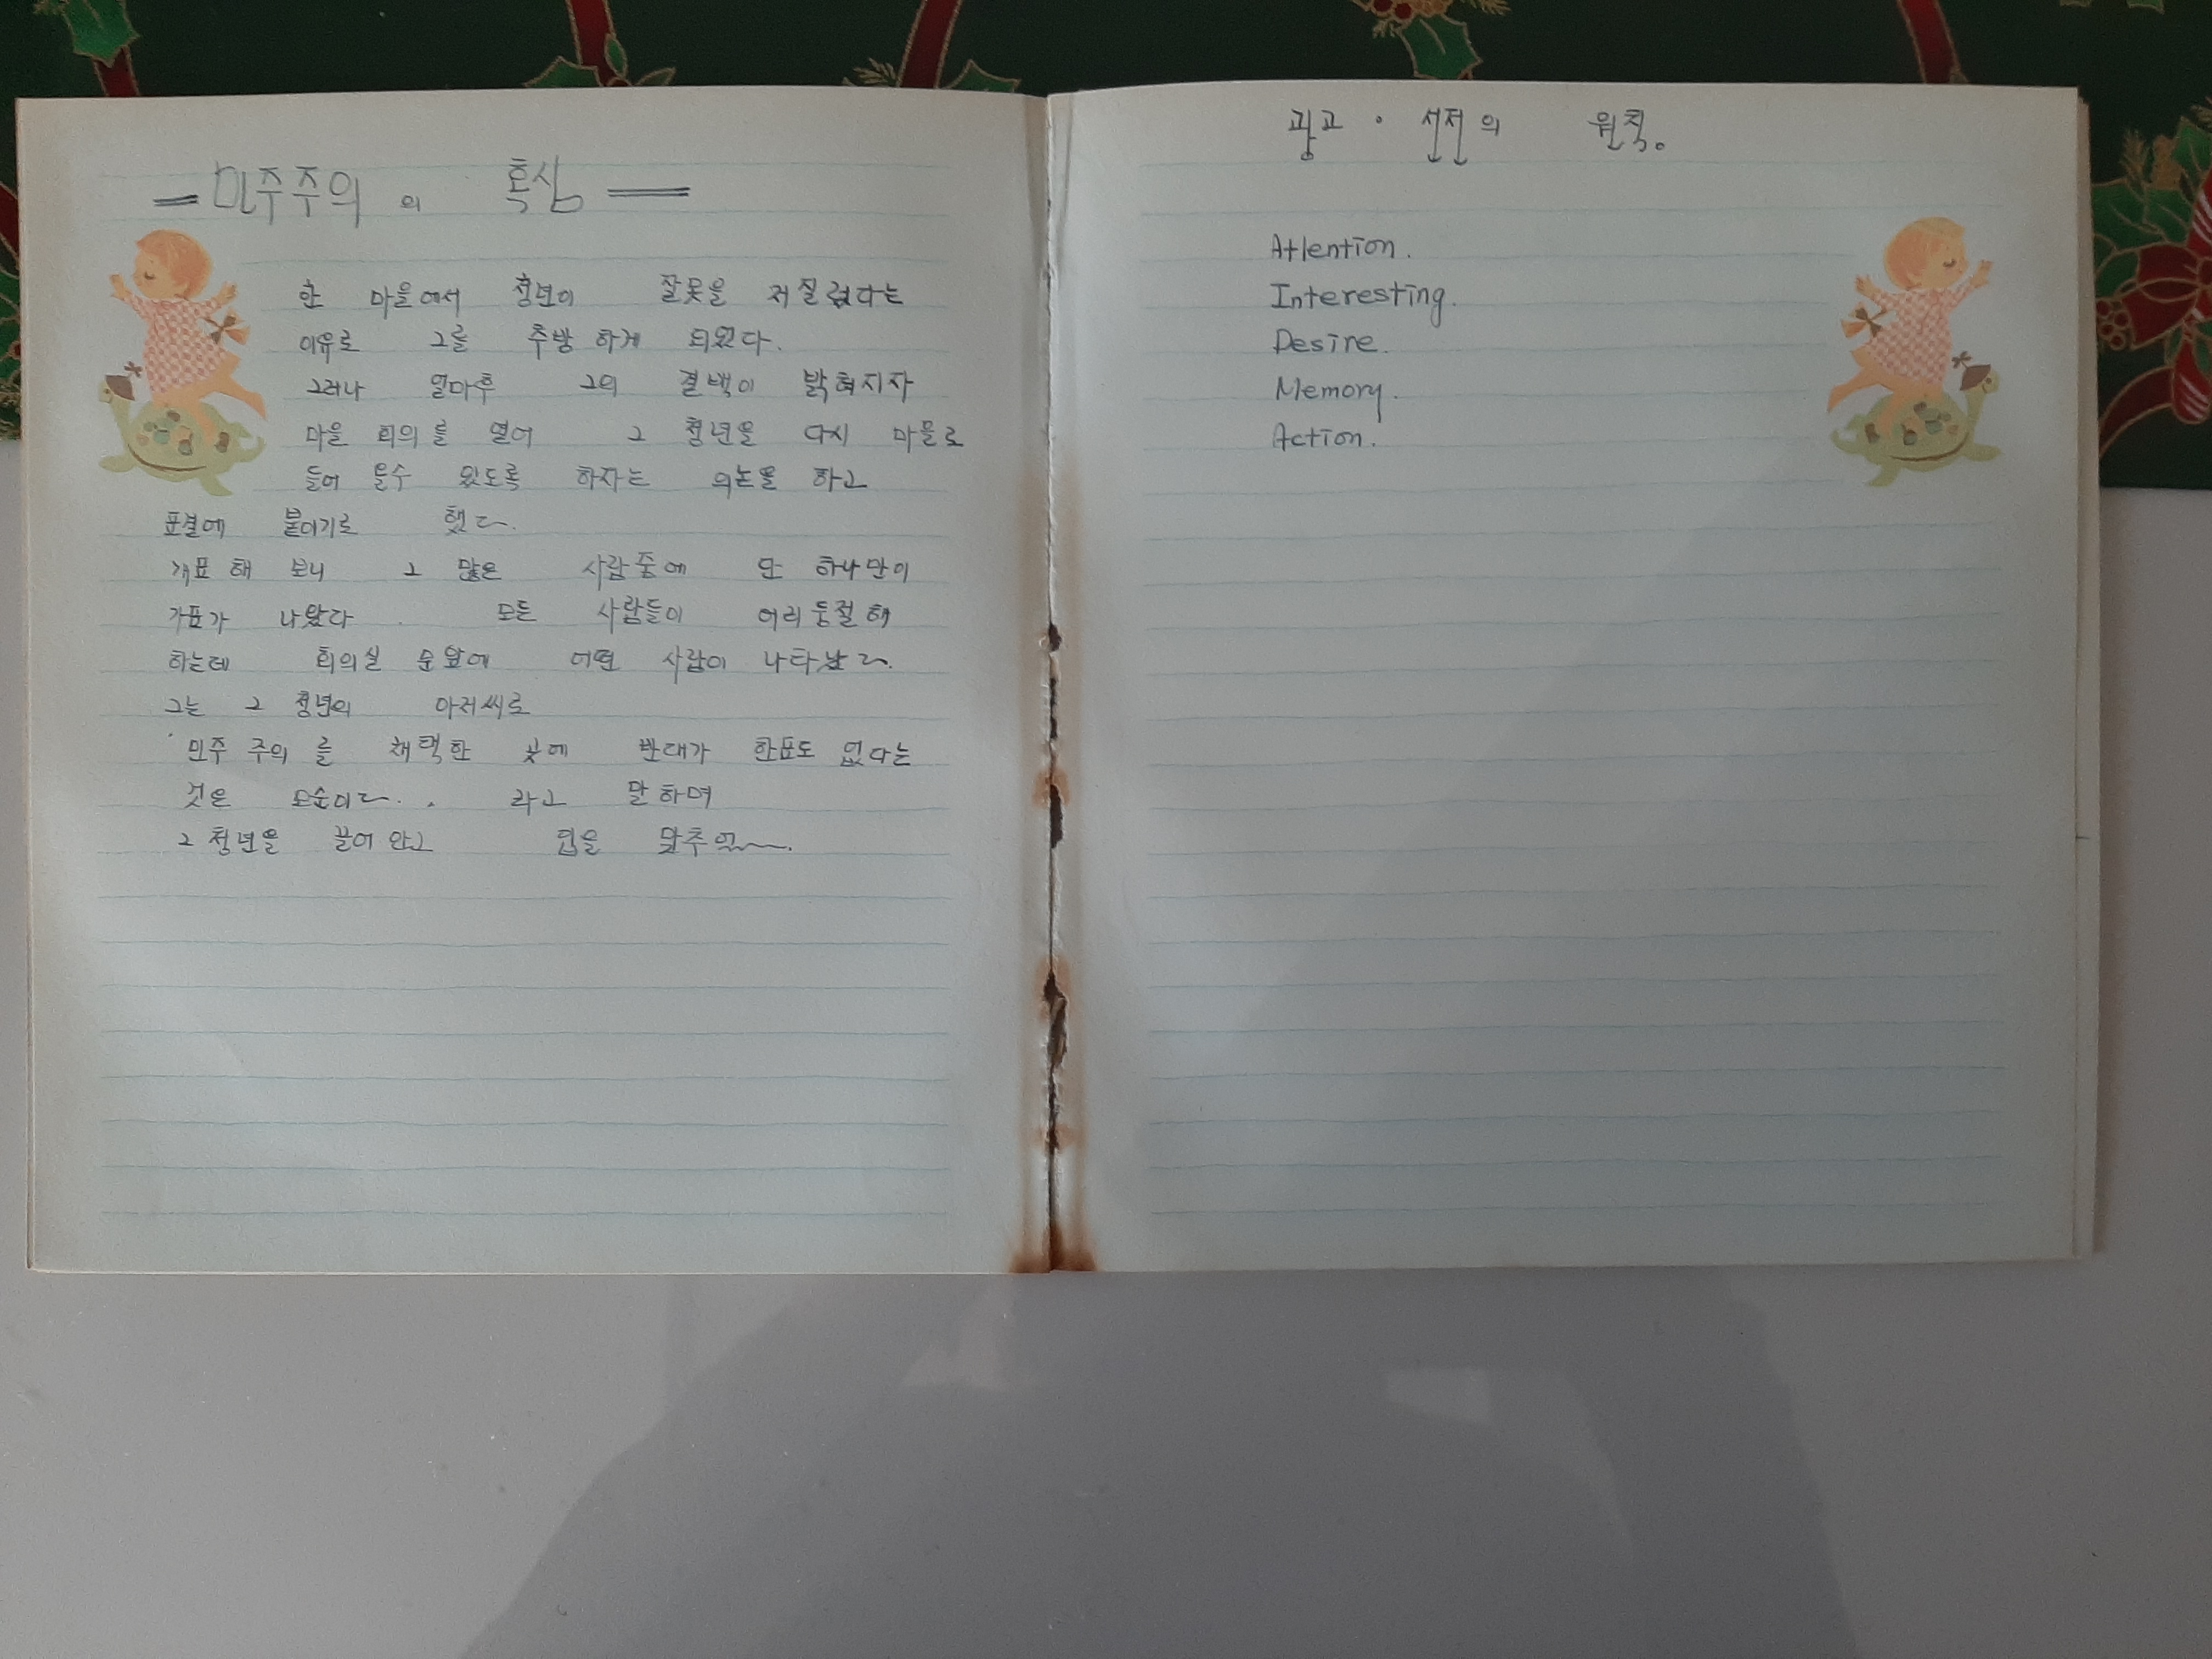 민주주의 의 혹심
한 마을에서 청년이 잘못을 저질렀다는
이유로 그를 추방 하게 되었다.
그러나 얼마후 그의 결백이 밝혀지자
마을 회의를 열어 그 청년을 다시 마을로
들어 올수 있도록 하자는 의논을 하고
표결에 붙이기로 했다.
개표 해 보니 그 많은 사람중에 단 하나만이
가표가 나왔다. 모든 사람들이 어리둥절해
하는데 회의실 문앞에 어떤 사람이 나타났다.
그는 그 청년의 아저씨로
민주 주의 를 채택한 곳에 반대가 한표도 없다는
것은 모순이다.. 라고 말하며
그 청년을 끌어 안고 입을 맞추었다.
광고 · 선전의 원칙.
Attention.
Interesting.
Desire.
Memory.
Action.